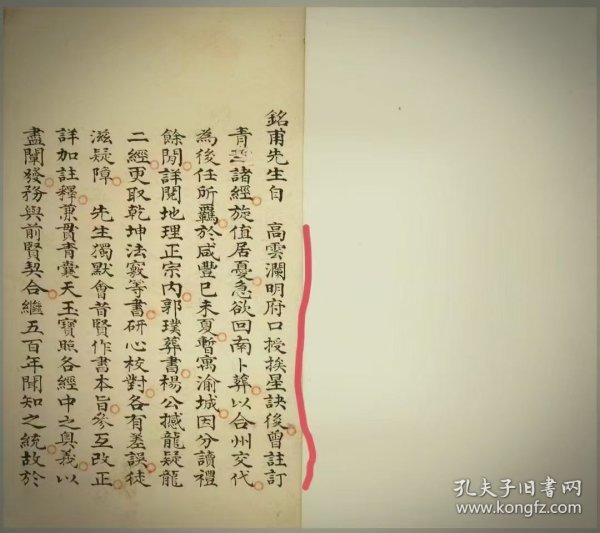 銘甫先生自　高雲瀾明府口授挨星訣後曾註訂
青囊諸經旋值居憂急欲回南卜葬以合州交代
為後任所羈於咸豐巳未夏暫寓渝城因分讀禮
餘閒詳閱地理正宗內郭璞葬書楊公撼龍疑龍
二經更取乾坤法竅等書研心校對各有差誤徒
滋疑障　先生獨默會昔賢作書本旨參互改正
詳加註釋兼貫青囊天玉寶照各經中之奧義以
盡闡發務與前賢契合繼五百年聞知之統故於
孔夫子旧书网
www.kongfz.com